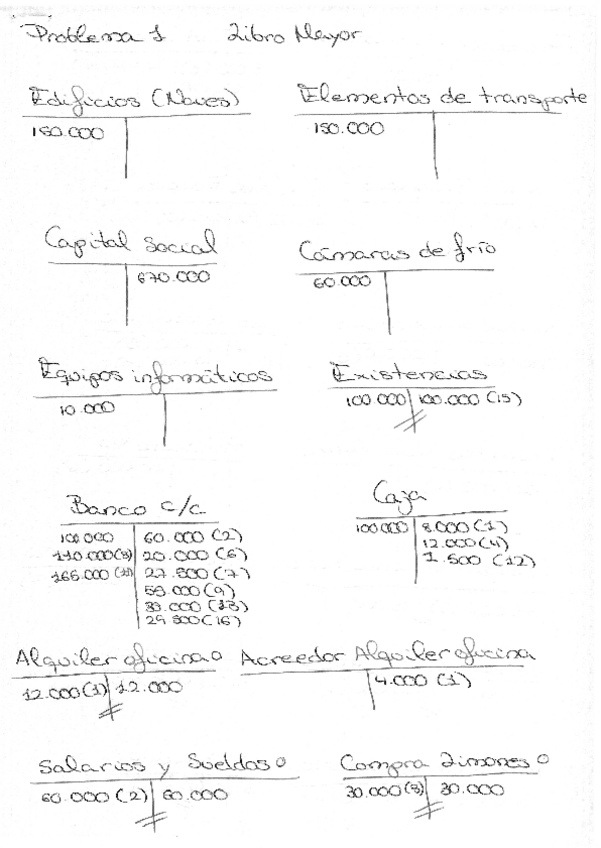 Problema 1 Libro Mayor
Edificios (Naves) Elementos de transporte
150.000 150.000
Capital Social Cámaras de frío
670.000 60.000
Equipos informáticos Existencias
10.000 100.000 100.000 (15)
Banco c/c Caja
100.000 60.000 (2) 100.000 8.000 (1)
110.000 (8) 20.000 (6) 12.000 (4)
(7) 1.500 (12)
(9)
(13)
(16)
Alquiler oficina o Acreedor Alquiler oficina
12.000 (1) 12.000 4.000 (1)
Salarios y Sueldos o Compra Limones o
60.000 (2) 60.000 30.000 (3) 30.000